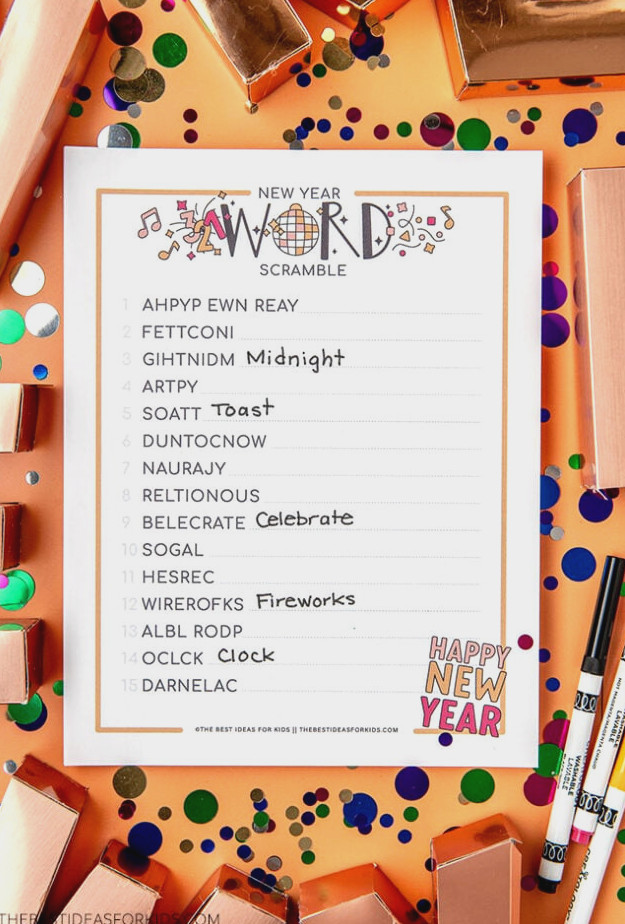 NEW YEAR
321 WORD
SCRAMBLE
1 AHPYP EWN REAY
2 FETTCONI
3 GIHTNIDM Midnight
4 ARTPY
5 SOATT Toast
6 DUNTOCNOW
7 NAURAJY
8 RELTIONOUS
9 BELECRATE Celebrate
10 SOGAL
11 HESREC
12 WIREROFKS Fireworks
13 ALBL RODP
14 OCLCK Clock
15 DARNELAC
HAPPY
NEW
YEAR
©THE BEST IDEAS FOR KIDS || THEBESTIDEASFORKIDS.COM
WASHABLE
THEBESTIDEASFORKIDS.COM